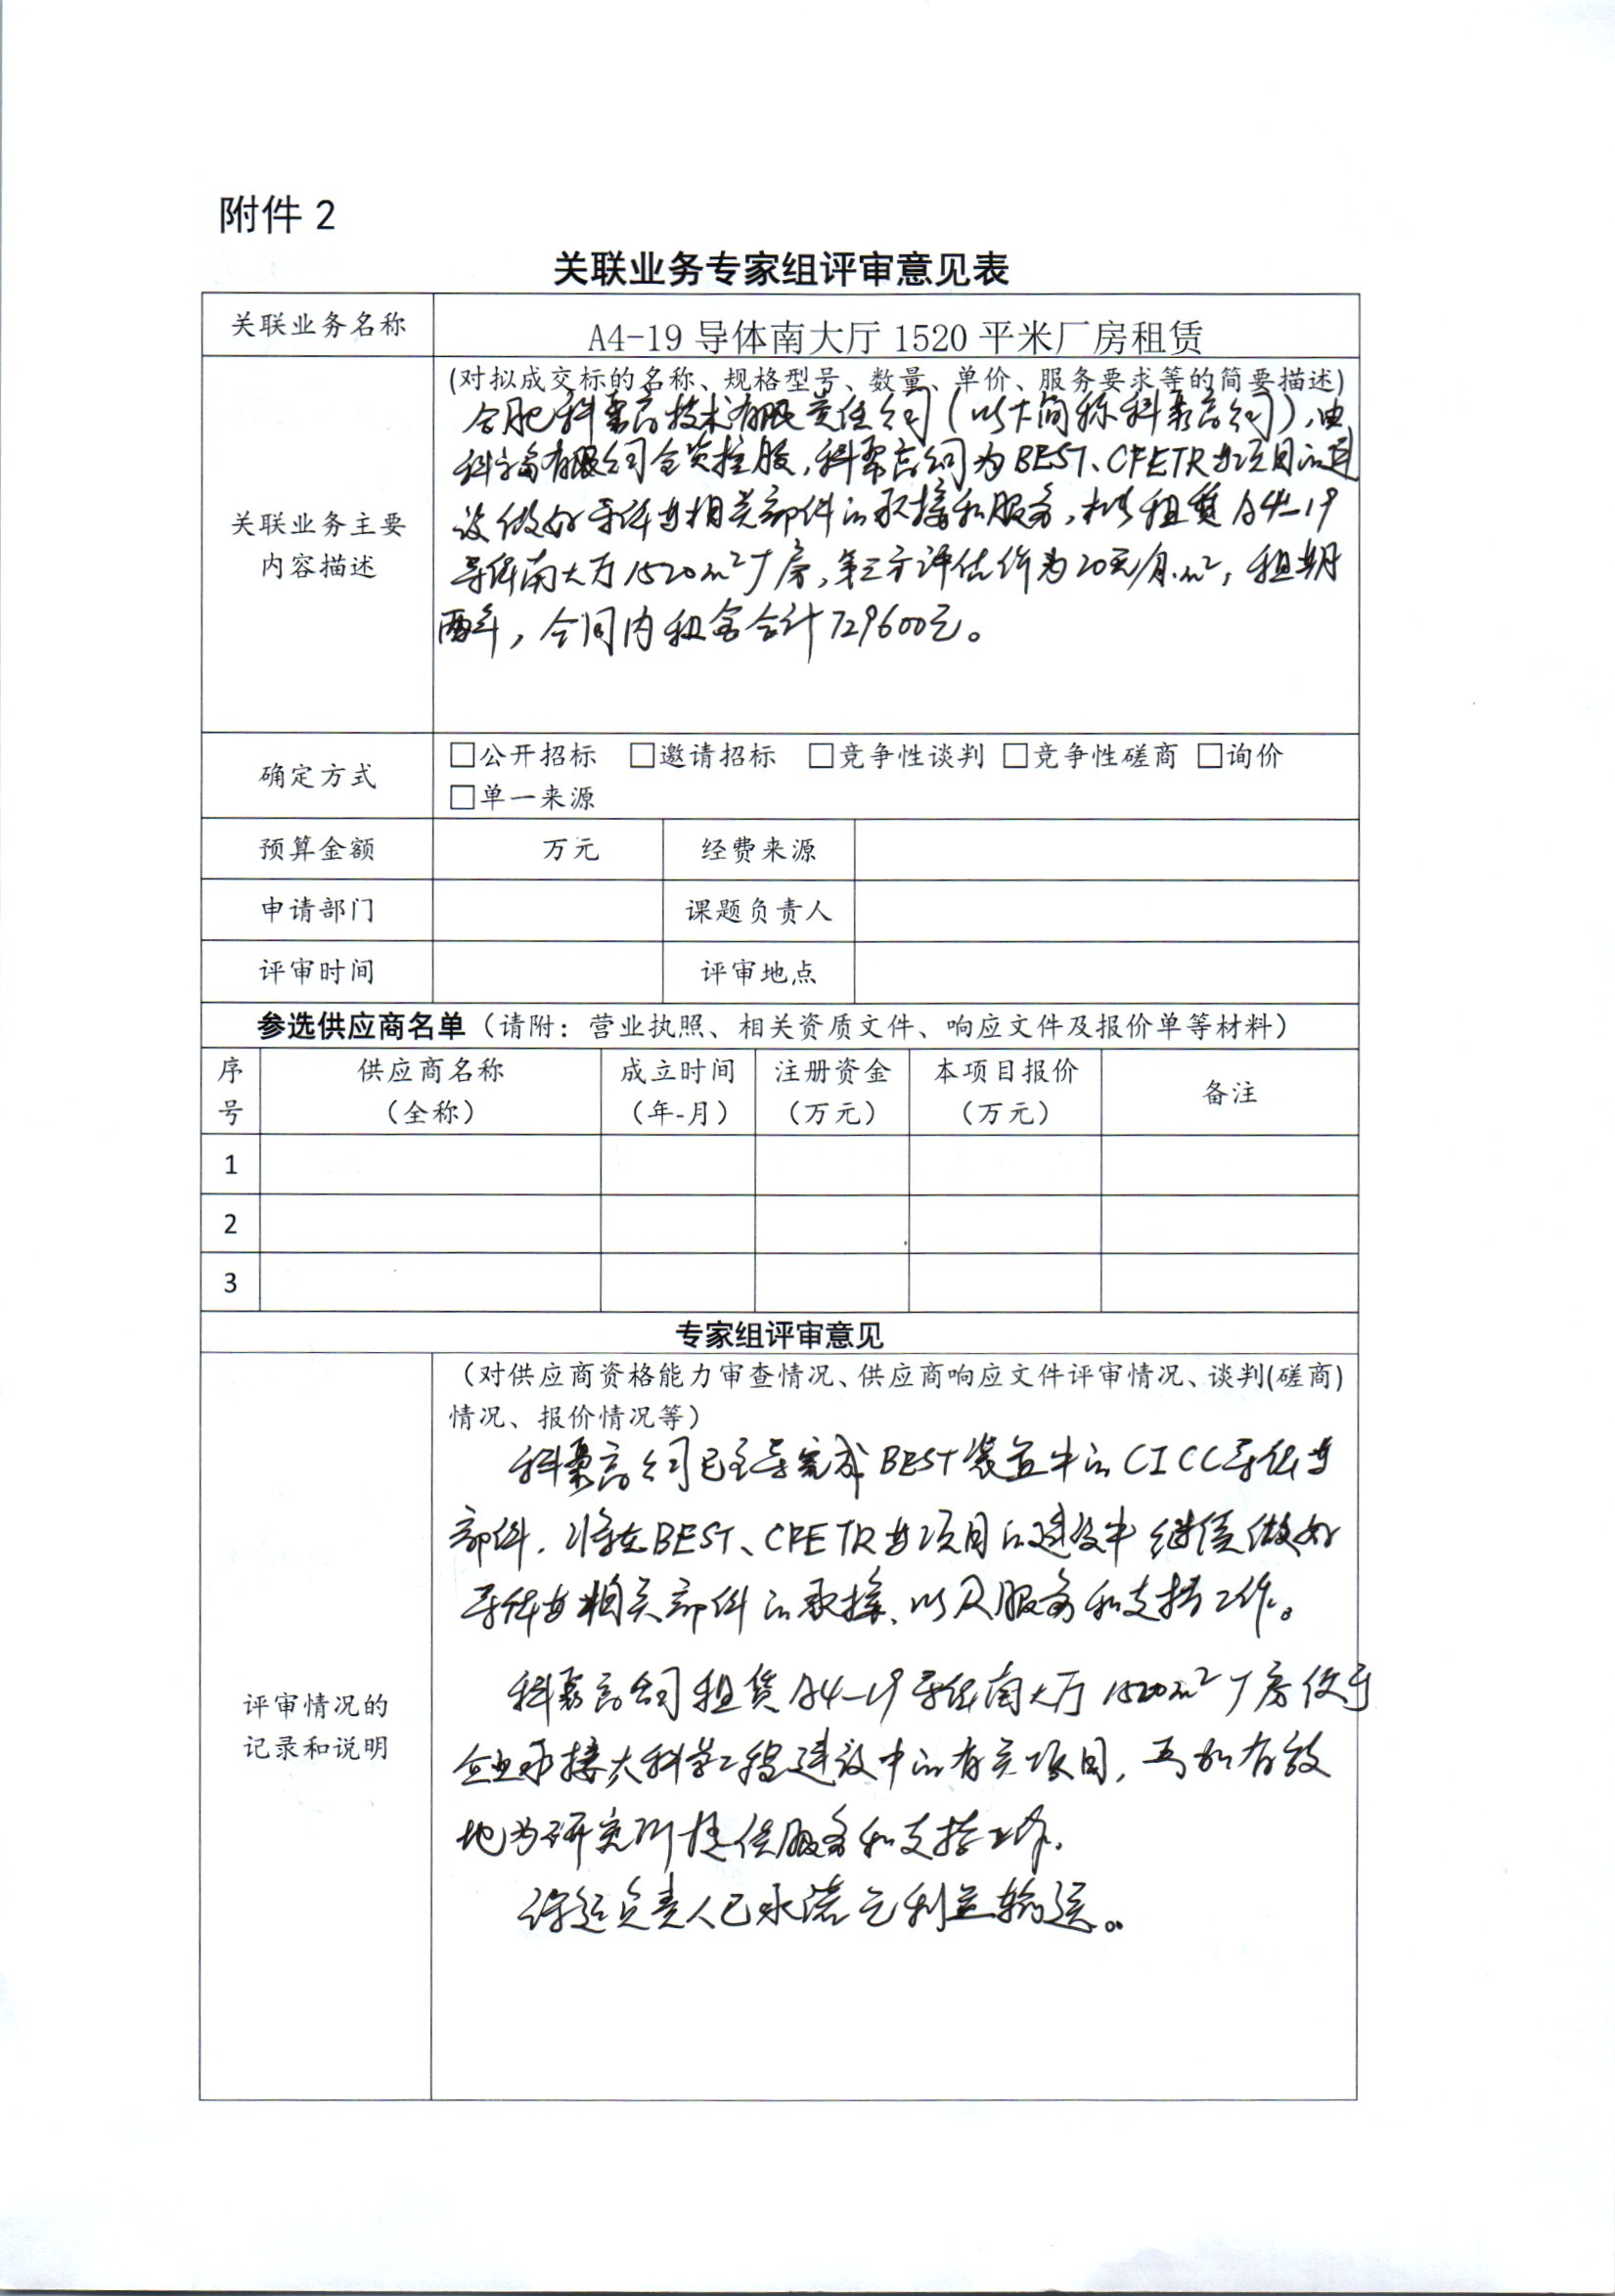 附件 2
关联业务专家组评审意见表
关联业务名称
A4-19 导体南大厅 1520 平米厂房租赁
关联业务主要
内容描述
(对拟成交标的名称、规格型号、数量、单价、服务要求等的简要描述)
合肥科聚高技术有限责任公司(以下简称科聚高公司),由
科富有限公司全资控股,科聚高公司为BEST、CFETR等项目的建
设做好导体等相关部件的承接和服务,拟租赁A4-19
导体南大厅1520m²厂房,第三方评估价为20元/月.m²,租期
两年,合同内租金合计729600元。
确定方式
□公开招标 □邀请招标 □竞争性谈判 □竞争性磋商 □询价
□单一来源
预算金额 万元 经费来源
申请部门 课题负责人
评审时间 评审地点
参选供应商名单(请附:营业执照、相关资质文件、响应文件及报价单等材料)
序号 供应商名称(全称) 成立时间(年-月) 注册资金(万元) 本项目报价(万元) 备注
1
2
3
专家组评审意见
评审情况的
记录和说明
(对供应商资格能力审查情况、供应商响应文件评审情况、谈判(磋商)
情况、报价情况等)
科聚高公司已主导完成BEST装置中的CICC导体等
部件,将在BEST、CFETR等项目的建设中继续做好
导体等相关部件的承接、以及服务和支持工作。
科聚高公司租赁A4-19导体南大厅1520m²厂房便于
企业承接大科学工程建设中的有关项目,更加有效
地为研究所提供服务和支持工作。
负责人已承诺无利益输送。